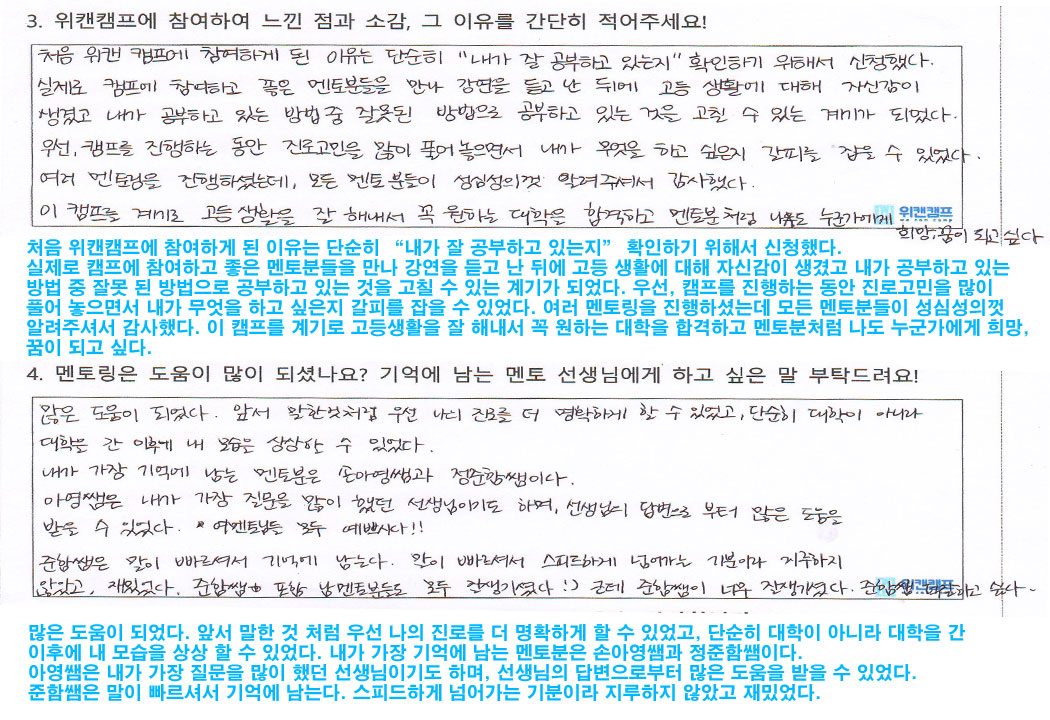 3. 위캔캠프에 참여하여 느낀 점과 소감, 그 이유를 간단히 적어주세요!
처음 위캔 캠프에 참여하게 된 이유는 단순히 "내가 잘 공부하고 있는지" 확인하기 위해서 신청했다.
실제로 캠프에 참여하고 좋은 멘토분들을 만나 강연을 듣고 난 뒤에 고등 생활에 대해 자신감이
생겼고 내가 공부하고 있는 방법 중 잘못된 방법으로 공부하고 있는 것을 고칠 수 있는 계기가 되었다.
우선, 캠프를 진행하는 동안 진로고민을 많이 풀어 놓으면서 내가 무엇을 하고 싶은지 갈피를 잡을 수 있었다.
여러 멘토링을 진행하셨는데, 모든 멘토분들이 성심성의껏 알려주셔서 감사했다.
이 캠프를 계기로 고등생활을 잘 해내서 꼭 원하는 대학을 합격하고 멘토분처럼 나도 누군가에게 위캔캠프
희망, 꿈이 되고 싶다
처음 위캔캠프에 참여하게 된 이유는 단순히 “내가 잘 공부하고 있는지” 확인하기 위해서 신청했다.
실제로 캠프에 참여하고 좋은 멘토분들을 만나 강연을 듣고 난 뒤에 고등 생활에 대해 자신감이 생겼고 내가 공부하고 있는
방법 중 잘못 된 방법으로 공부하고 있는 것을 고칠 수 있는 계기가 되었다. 우선, 캠프를 진행하는 동안 진로고민을 많이
풀어 놓으면서 내가 무엇을 하고 싶은지 갈피를 잡을 수 있었다. 여러 멘토링을 진행하셨는데 모든 멘토분들이 성심성의껏
알려주셔서 감사했다. 이 캠프를 계기로 고등생활을 잘 해내서 꼭 원하는 대학을 합격하고 멘토분처럼 나도 누군가에게 희망,
꿈이 되고 싶다.
4. 멘토링은 도움이 많이 되셨나요? 기억에 남는 멘토 선생님에게 하고 싶은 말 부탁드려요!
많은 도움이 되었다. 앞서 말한것처럼 우선 나의 진로를 더 명확하게 할 수 있었고, 단순히 대학이 아니라
대학을 간 이후에 내 모습을 상상할 수 있었다.
내가 가장 기억에 남는 멘토분은 손아영쌤과 정준함쌤이다.
아영쌤은 내가 가장 질문을 많이 했던 선생님이기도 하며, 선생님의 답변으로 부터 많은 도움을
받을 수 있었다. * 여멘토님들 모두 예쁘시다!!
준함쌤은 말이 빠르셔서 기억에 남는다. 말이 빠르셔서 스피드하게 넘어가는 기분이라 지루하지
않았고, 재밌었다. 준함쌤 포함 남멘토분들도 모두 잘생기셨다 !) 근데 준함쌤이 너무 잘생기셨다. 준함쌤 싶다.
위캔캠프
많은 도움이 되었다. 앞서 말한 것 처럼 우선 나의 진로를 더 명확하게 할 수 있었고, 단순히 대학이 아니라 대학을 간
이후에 내 모습을 상상 할 수 있었다. 내가 가장 기억에 남는 멘토분은 손아영쌤과 정준함쌤이다.
아영쌤은 내가 가장 질문을 많이 했던 선생님이기도 하며, 선생님의 답변으로부터 많은 도움을 받을 수 있었다.
준함쌤은 말이 빠르셔서 기억에 남는다. 스피드하게 넘어가는 기분이라 지루하지 않았고 재밌었다.